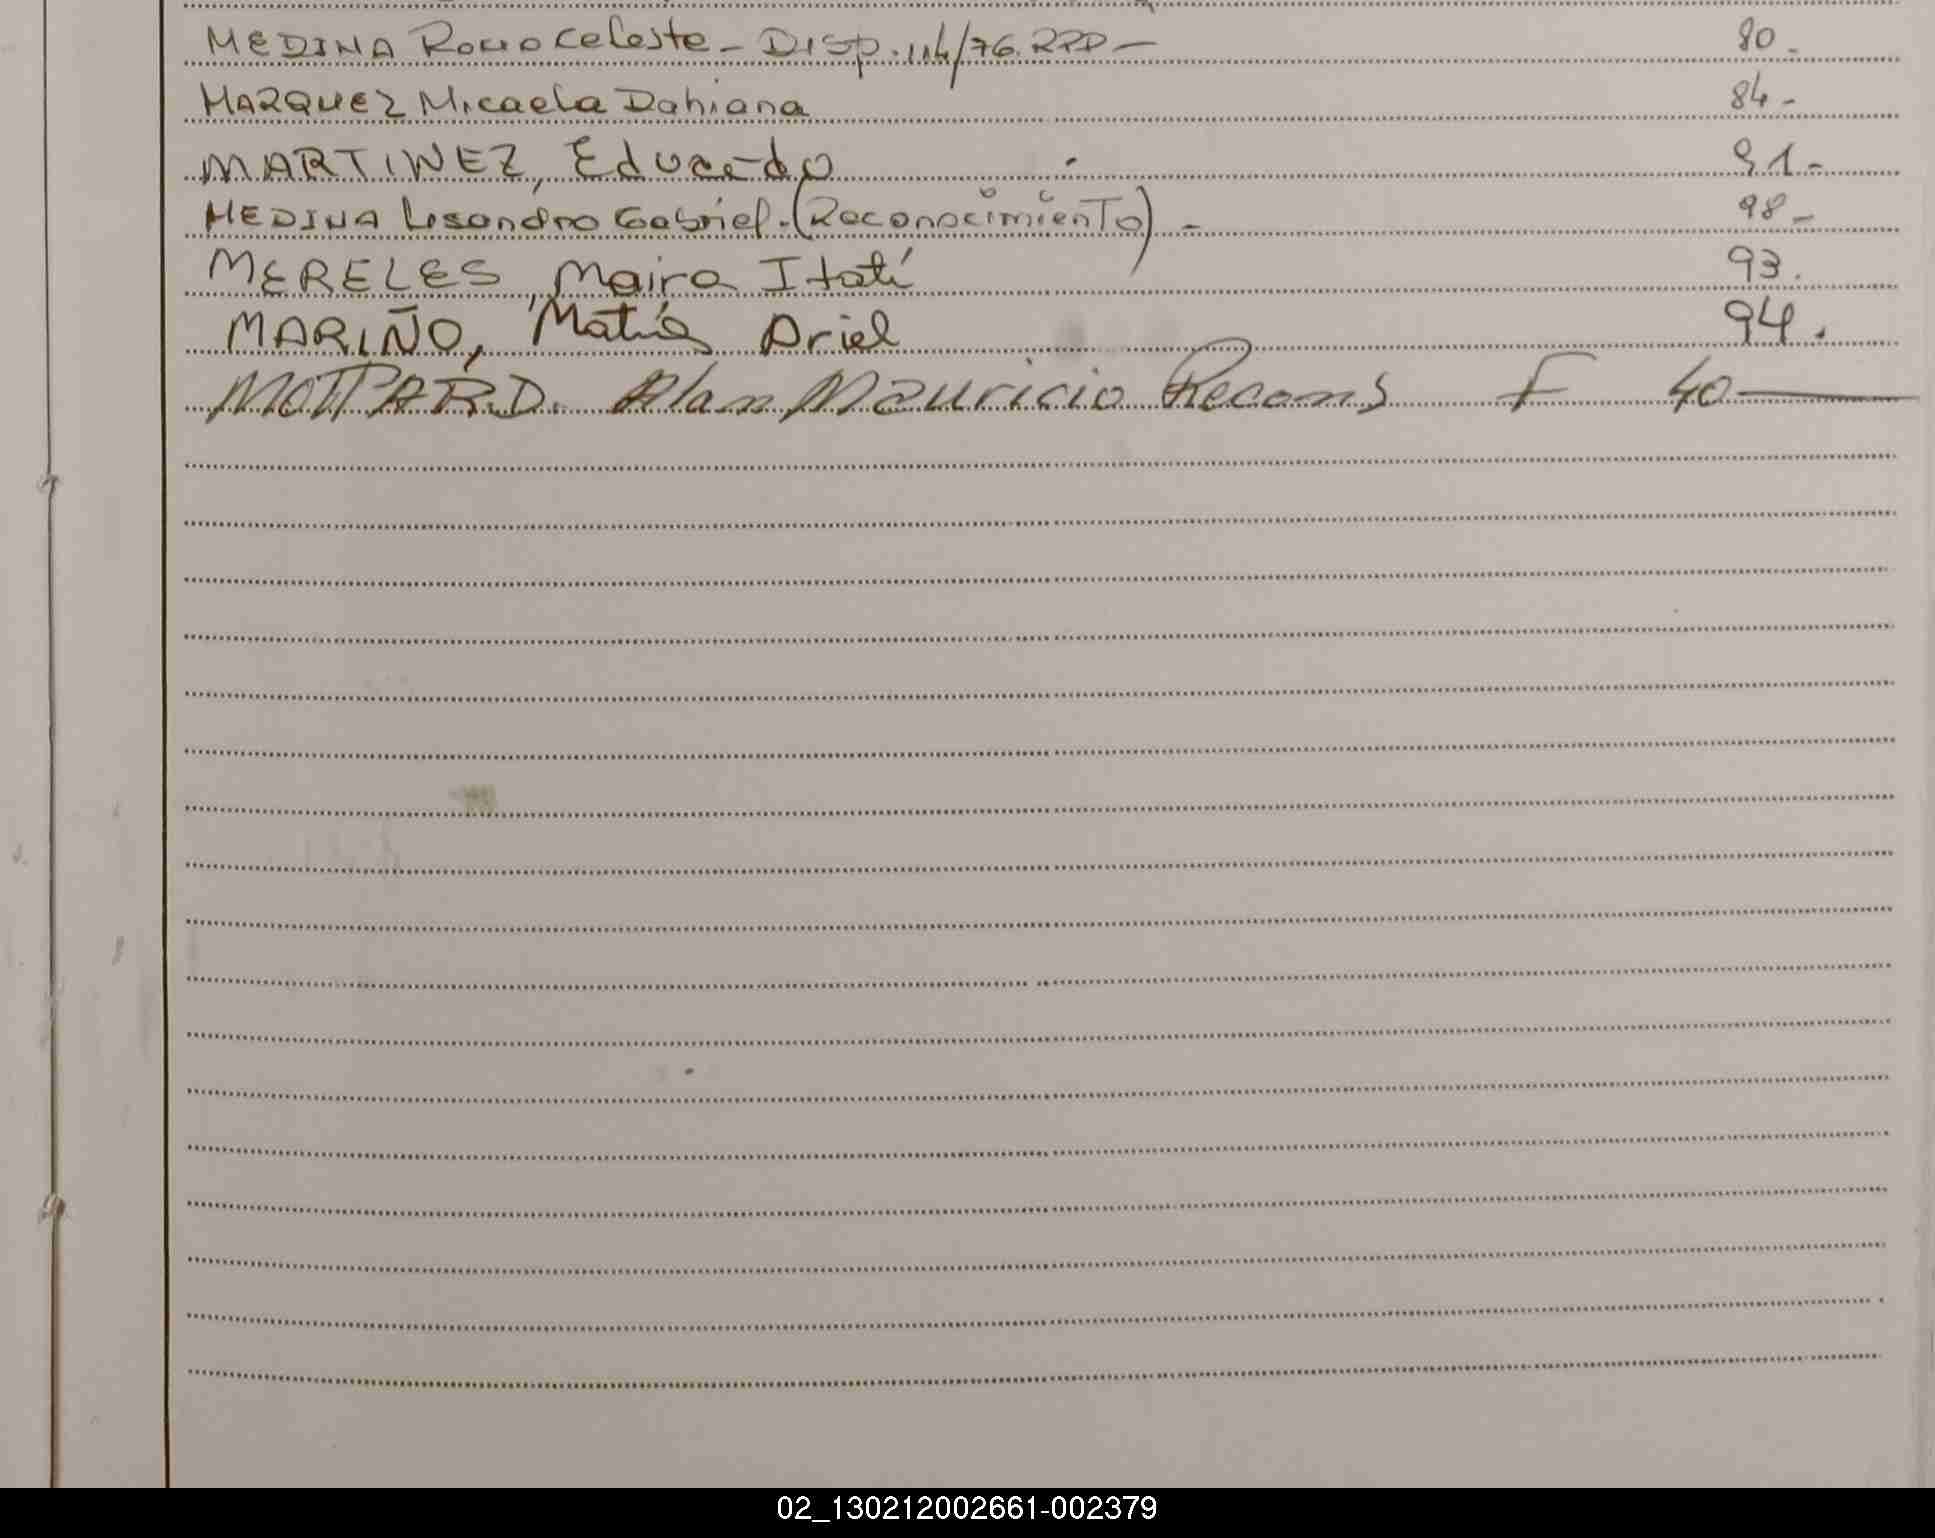 MEDINA Rocio Celeste - DISP. 114/76. RPD - 80.-
MARQUEZ Micaela Dahiana 84-
MARTINEZ, Eduardo 91-
MEDINA Lisandro Gabriel. (Reconocimiento) - 98-
MERELES, Maira Itatí 93.
MARIÑO, Matías Ariel 94.
MOTTARD. Alan Mauricio F 40
02_130212002661-002379